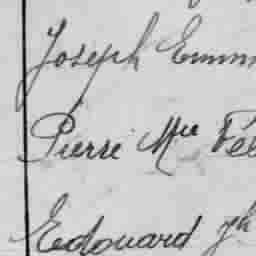 Joseph Emm
Pierre Mie Fél
Edouard Jh